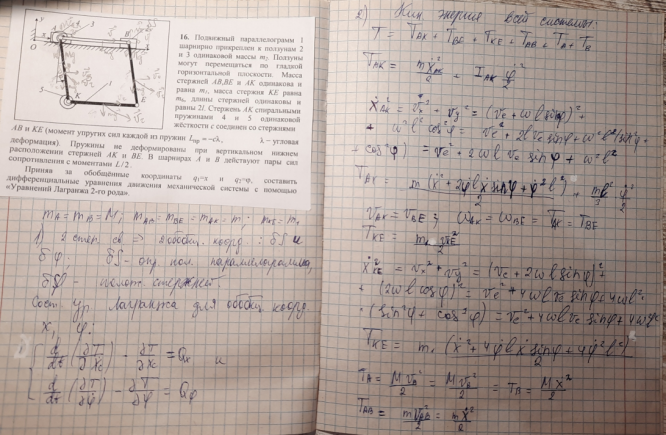 16. Подвижный параллелограмм 1
шарнирно прикреплен к ползунам 2
и 3 одинаковой массы m₂. Ползуны
могут перемещаться по гладкой
горизонтальной плоскости. Масса
стержней AB, BE и AK одинакова и
равна m₁, масса стержня KE равна
длины стержней одинаковы и
равны 2l. Стержень AK спиральными
пружинами 4 и 5 одинаковой
жёсткости c соединен со стержнями
AB и KE (момент упругих сил каждой из пружин Lупр = -cλ, λ - угловая
деформация). Пружины не деформированы при вертикальном нижнем
расположении стержней AK и BE. В шарнирах A и B действуют пары сил
сопротивления с моментами L/2.
Приняв за обобщённые координаты q₁=x и q₂=φ, составить
дифференциальные уравнения движения механической системы с помощью
«Уравнений Лагранжа 2-го рода».
m_A = m_B = M; m_AB = m_BE = m_AK = m; m_KE = m₁
1) 2 степ. св => 2 обобщ. коорд.: δS и
δφ. δS - опр. пол. параллелограмма,
δφ - полож. стержней.
Сост. ур. Лагранжа для обобщ. коор.
x, φ:
d/dt (∂T/∂ẋ) - ∂T/∂x = Qx и
d/dt (∂T/∂φ̇) - ∂T/∂φ = Qφ
2) Кин. энергия всей системы:
T = T_AK + T_BE + T_KE + T_AB + T_A + T_B
T_AK = mẋ²_AK/2 + I_AK φ̇²/2
ẋ²_AK = v_x² + v_y² = (v_c + ωl sinφ)² +
+ ω²l² cos²φ = v_c² + 2l v_c sinφ + ω²l²(sin²φ +
+ cos²φ) = v_c² + 2ωl v_c sinφ + ω²l²
T_AK = m(ẋ² + 2φ̇lẋ sinφ + φ̇²l²)/2 + ml²/3 φ̇²/2
v_AK = v_BE; ω_AK = ω_BE => T_AK = T_BE
T_KE = m₁v²_KE/2
ẋ²_KE = v_x² + v_y² = (v_c + 2ωl sinφ)² +
+ (2ωl cosφ)² = v_c² + 4ωl v_c sinφ + 4ω²l²·
·(sin²φ + cos²φ) = v_c² + 4ωl v_c sinφ + 4ω²l²
T_KE = m₁(ẋ² + 4φ̇lẋ sinφ + 4φ̇²l²)/2
T_A = Mv_A²/2 = Mv_B²/2 = T_B = Mẋ²/2
T_AB = mv²_AB/2 = mẋ²/2